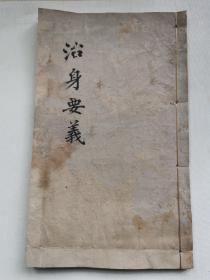 治身要義